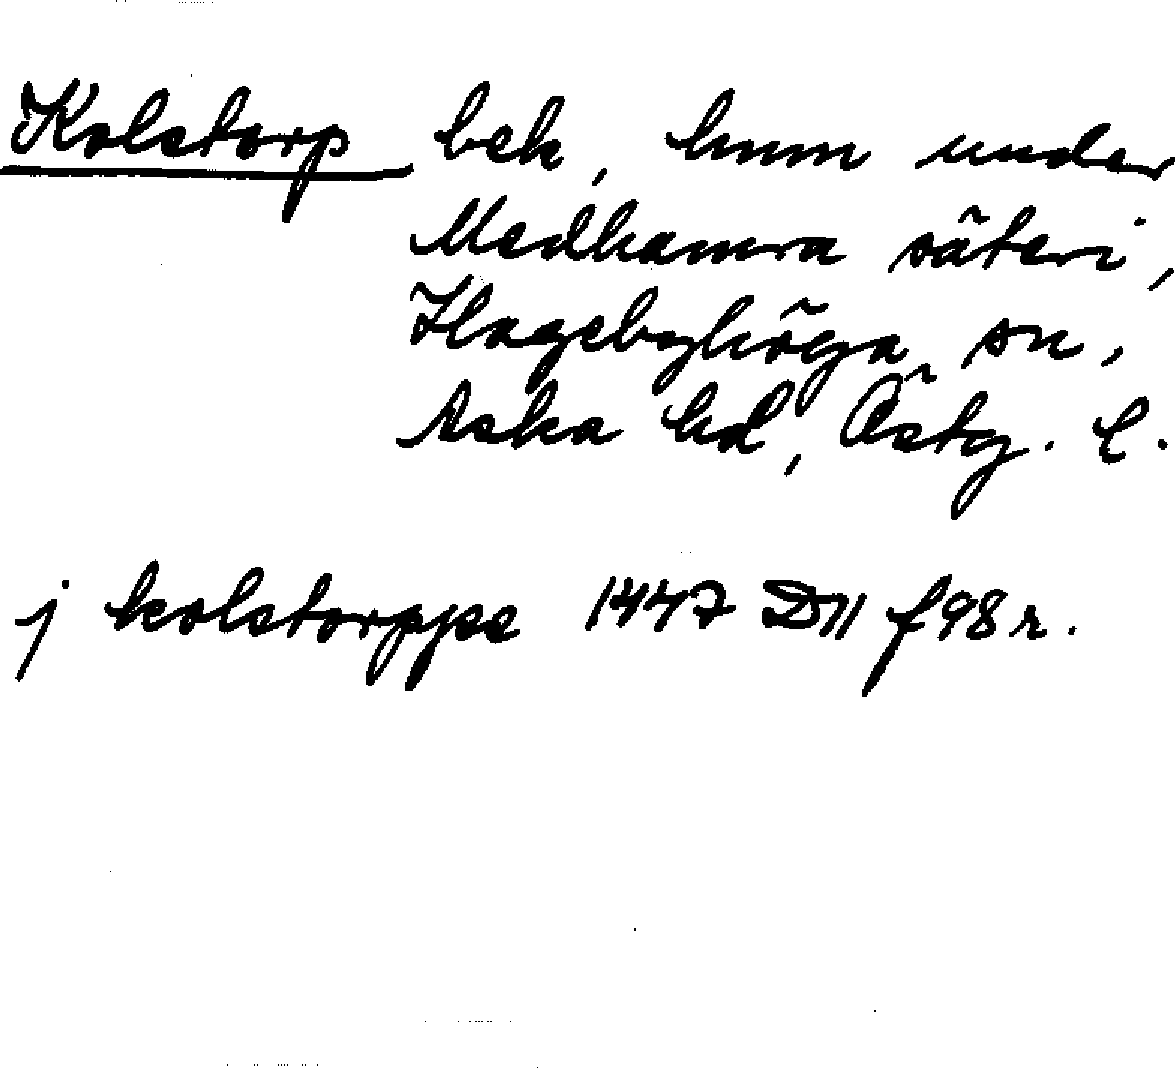 Kolstorp bek, hmm under
Medhamra säteri,
Hagebyhöga sn,
Aska hd, Östg. l.
j kolstorppe 1447 D 11 f 98 r.